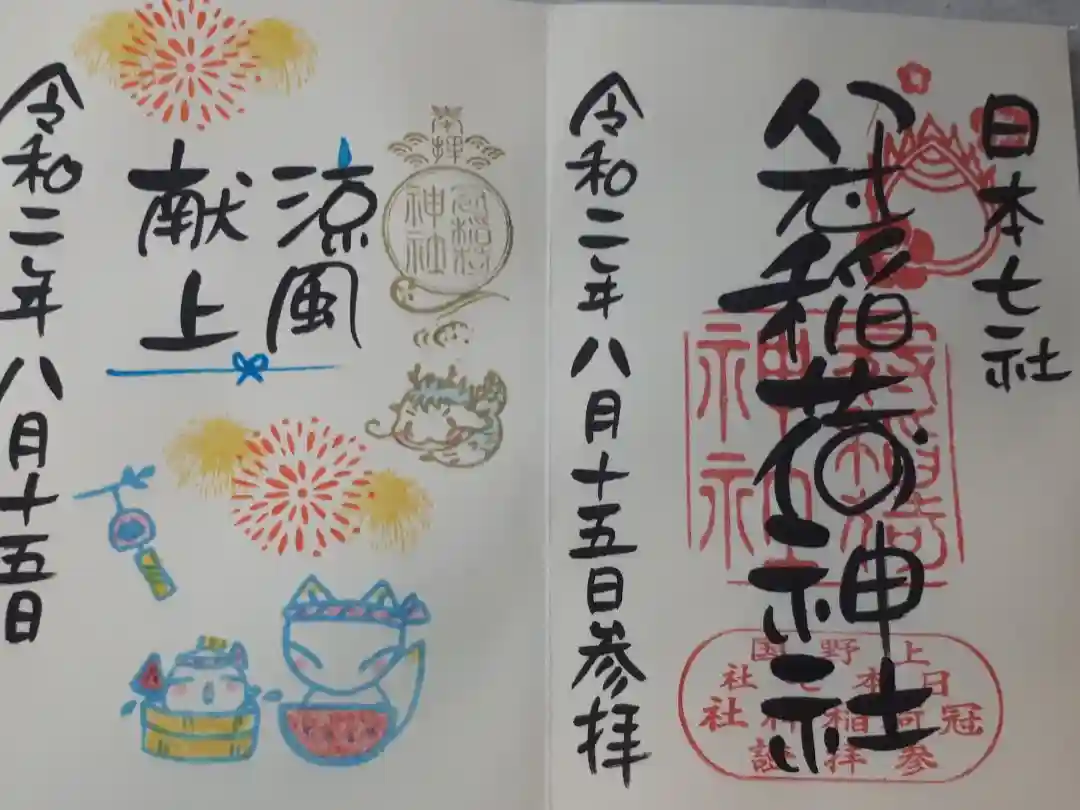 日本七社
冠稲荷神社
令和二年八月十五日参拝
上野国
日本七社
冠稲荷神社
参拝證
奉拝
冠稲荷神社
涼風
献上
令和二年八月十五日